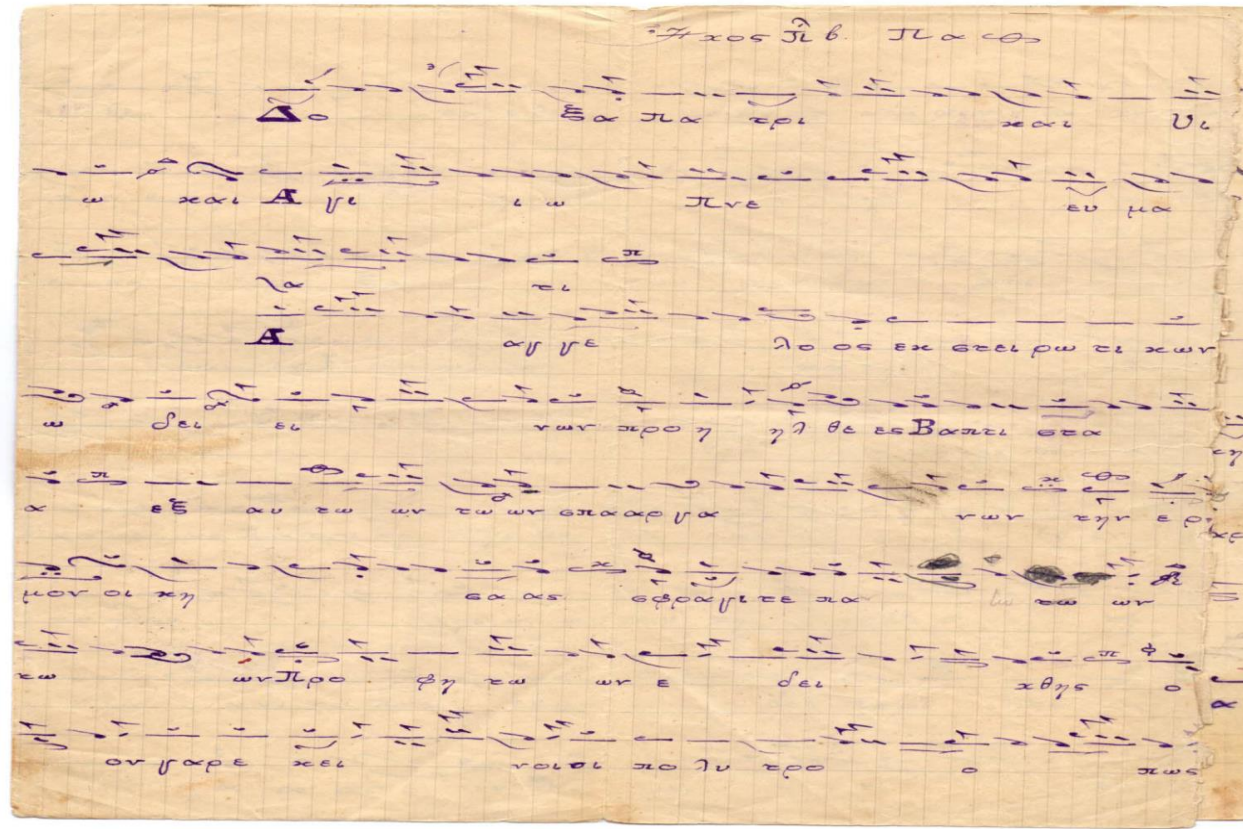 Ηχος πλ β. Πα
Δο ξα πα τρι και Υι
ω και Α γι ι ω πνε ευ μα
α τι
Α αγ γε λο ος εκ στει ρω τι κων
ω δει ει νων προ η ηλ θε ες Βαπτι στα
α εξ αυ τω ων τω ων σπα αρ γα νων την ερ
μον οι κη σα ας σφραγι τε πα τω ων
τω ων Προ φη τω ων ε δει χθης ο
ον γαρ ε κει νοι οι πο λυ τρο ο πως